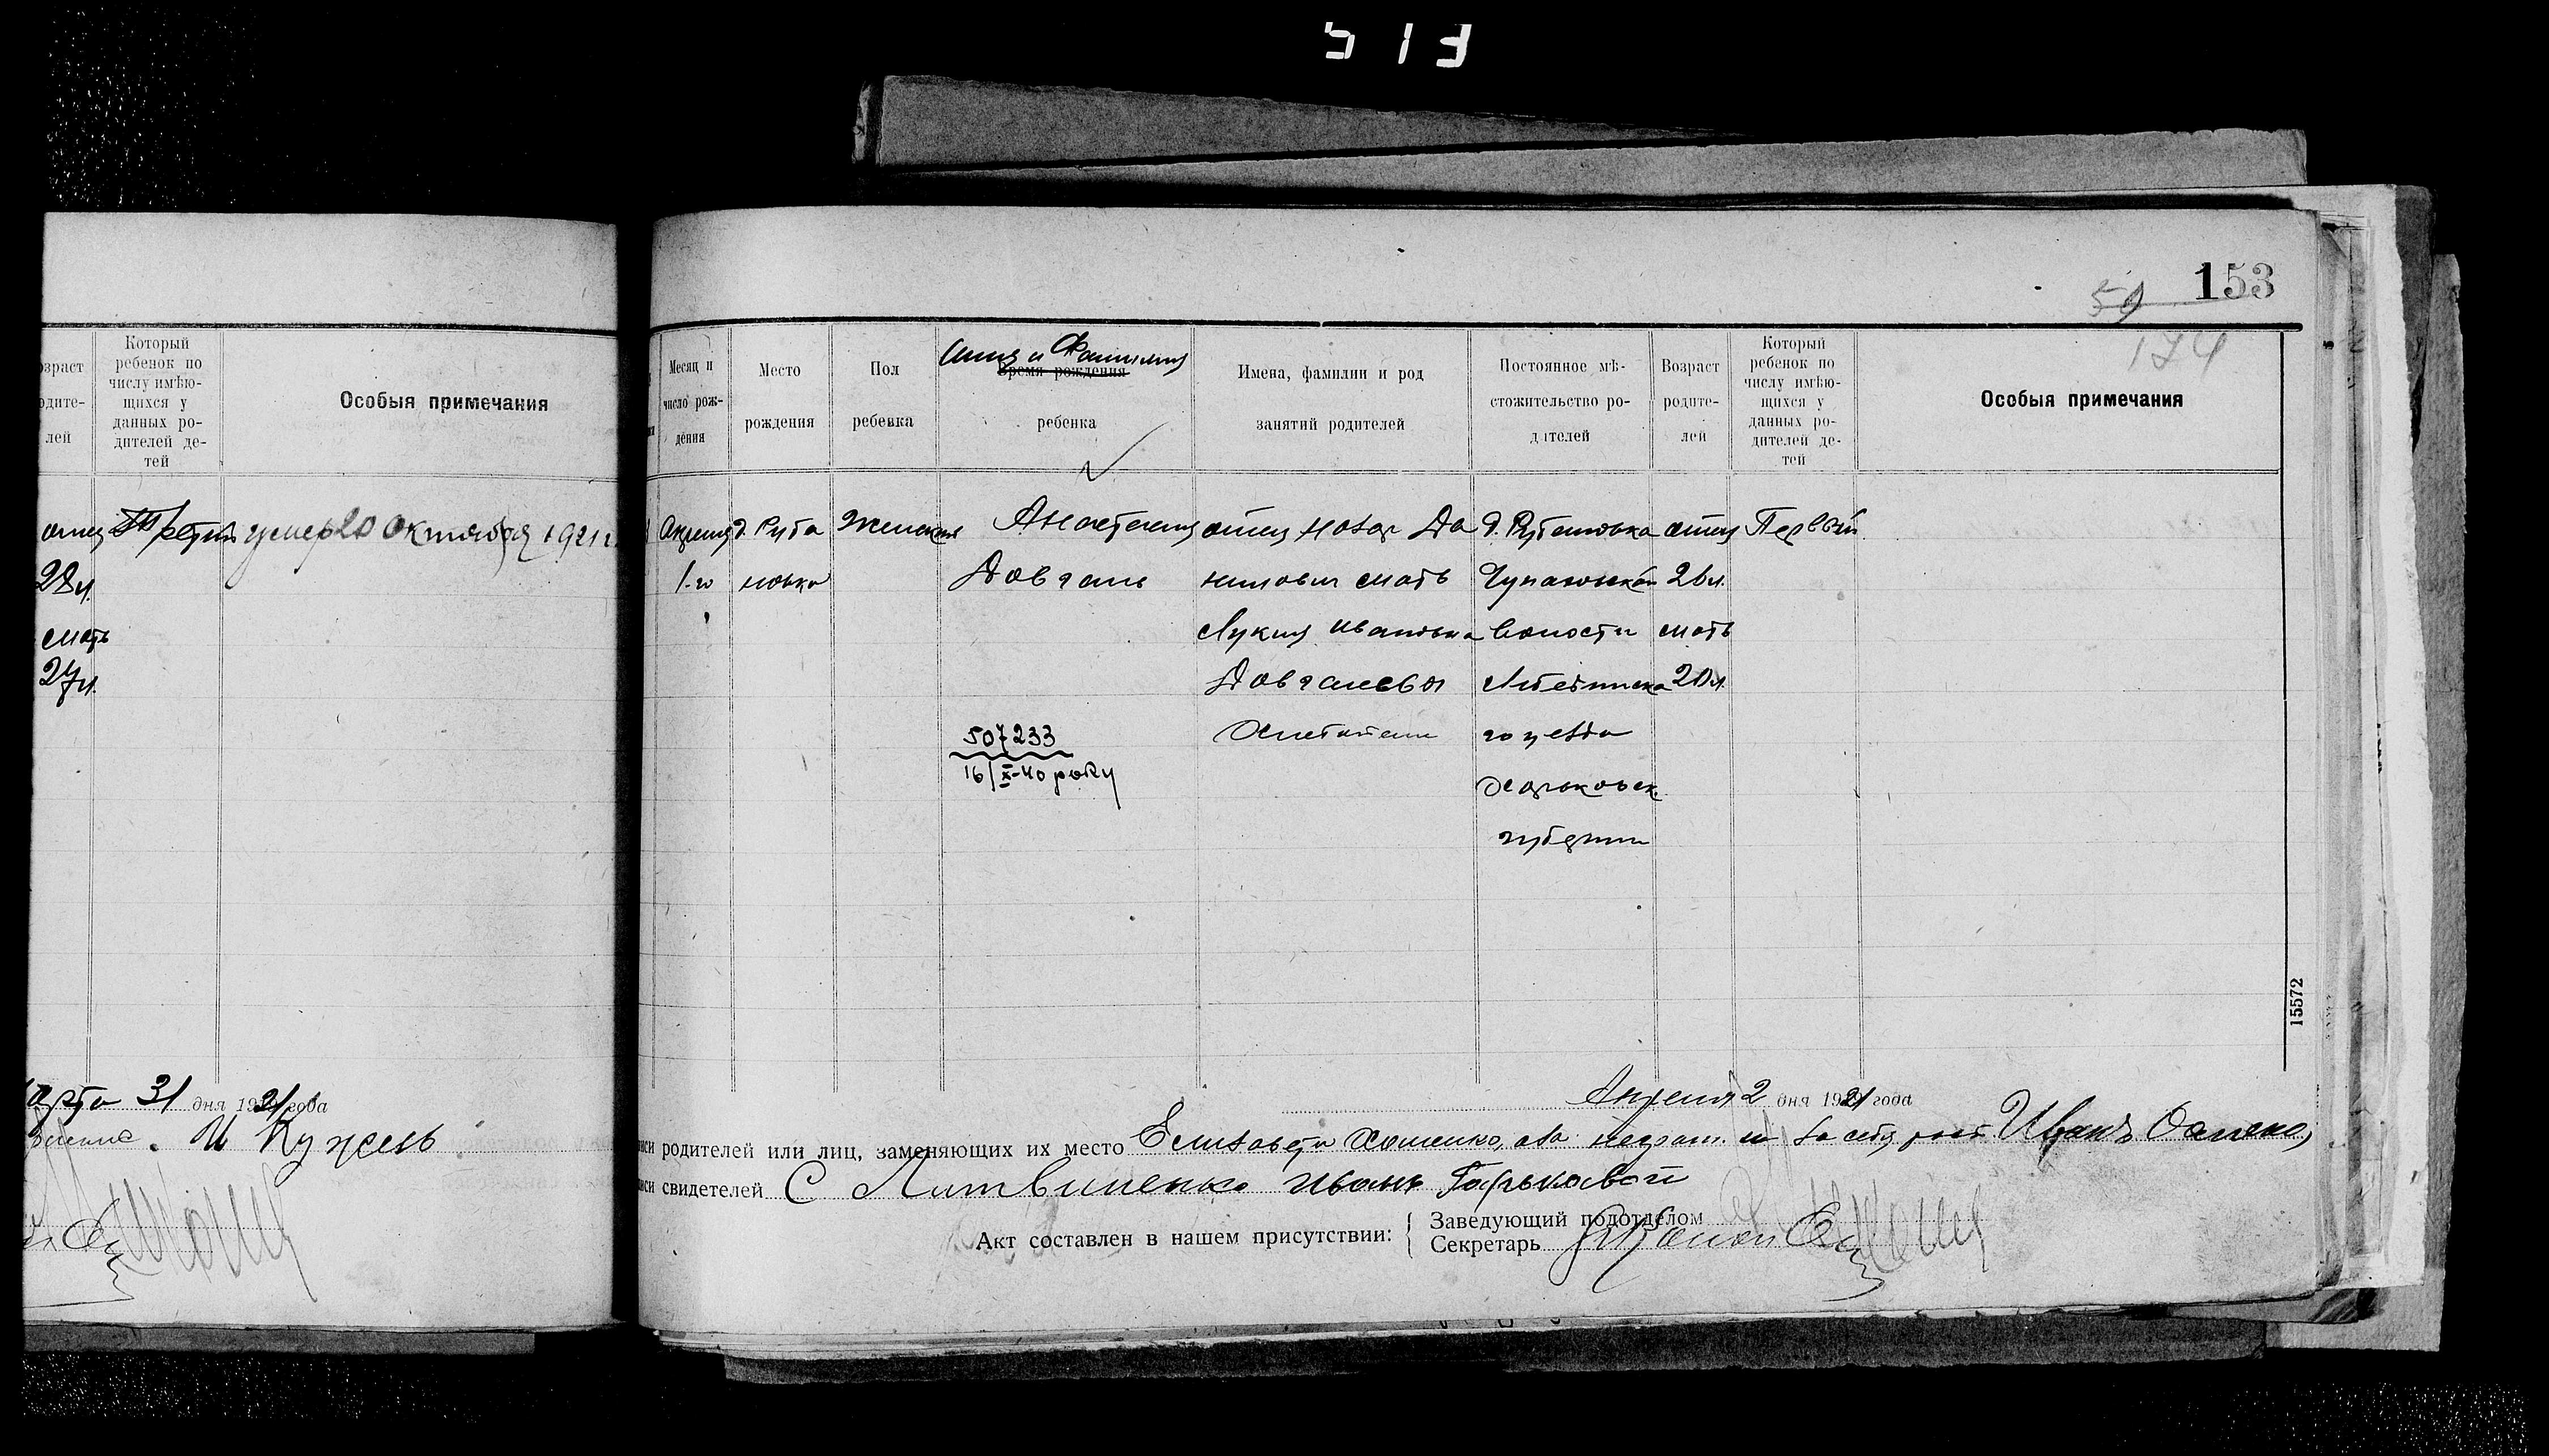 513
153
59
174
озраст
одите-
лей
Который
ребенок по
числу имѣю-
щихся у
данных ро-
дителей де-
тей
Особыя примечания
отец
28 л.
мать
27 л.
Третий
умер 20 Октября 1921 г.
арта 31 дня 1921 года
И Кужель
Месяц и
число рож-
дения
Место
рождения
Пол
ребенка
Имя и Фамилия
Время рождения
ребенка
Имена, фамилии и род
занятий родителей
Постоянное мѣ-
стожительство ро-
дителей
Возраст
родите-
лей
Который
ребенок по
числу имѣю-
щихся у
данных ро-
дителей де-
тей
Особыя примечания
Апреля
1-го
д. Руба
новка
Женский
Анастасия
Довгаль
507233
16/X-40 року
отец Назар Да
нилович мать
Лукия Ивановна
Довгалевы
д. Рубановка
Чупаховской
волости
Лебединска
го уезда
Харьковск.
губернии
отец
26 л.
мать
20 л.
Первый
15572
Апреля 2 дня 1921 года
иси родителей или лиц, заменяющих их место Елизавета Хоменко, а за неграм. Иван
иси свидетелей С Литвиненко Иван Горьковой
Акт составлен в нашем присутствии:
Заведующий подотделом
Секретарь